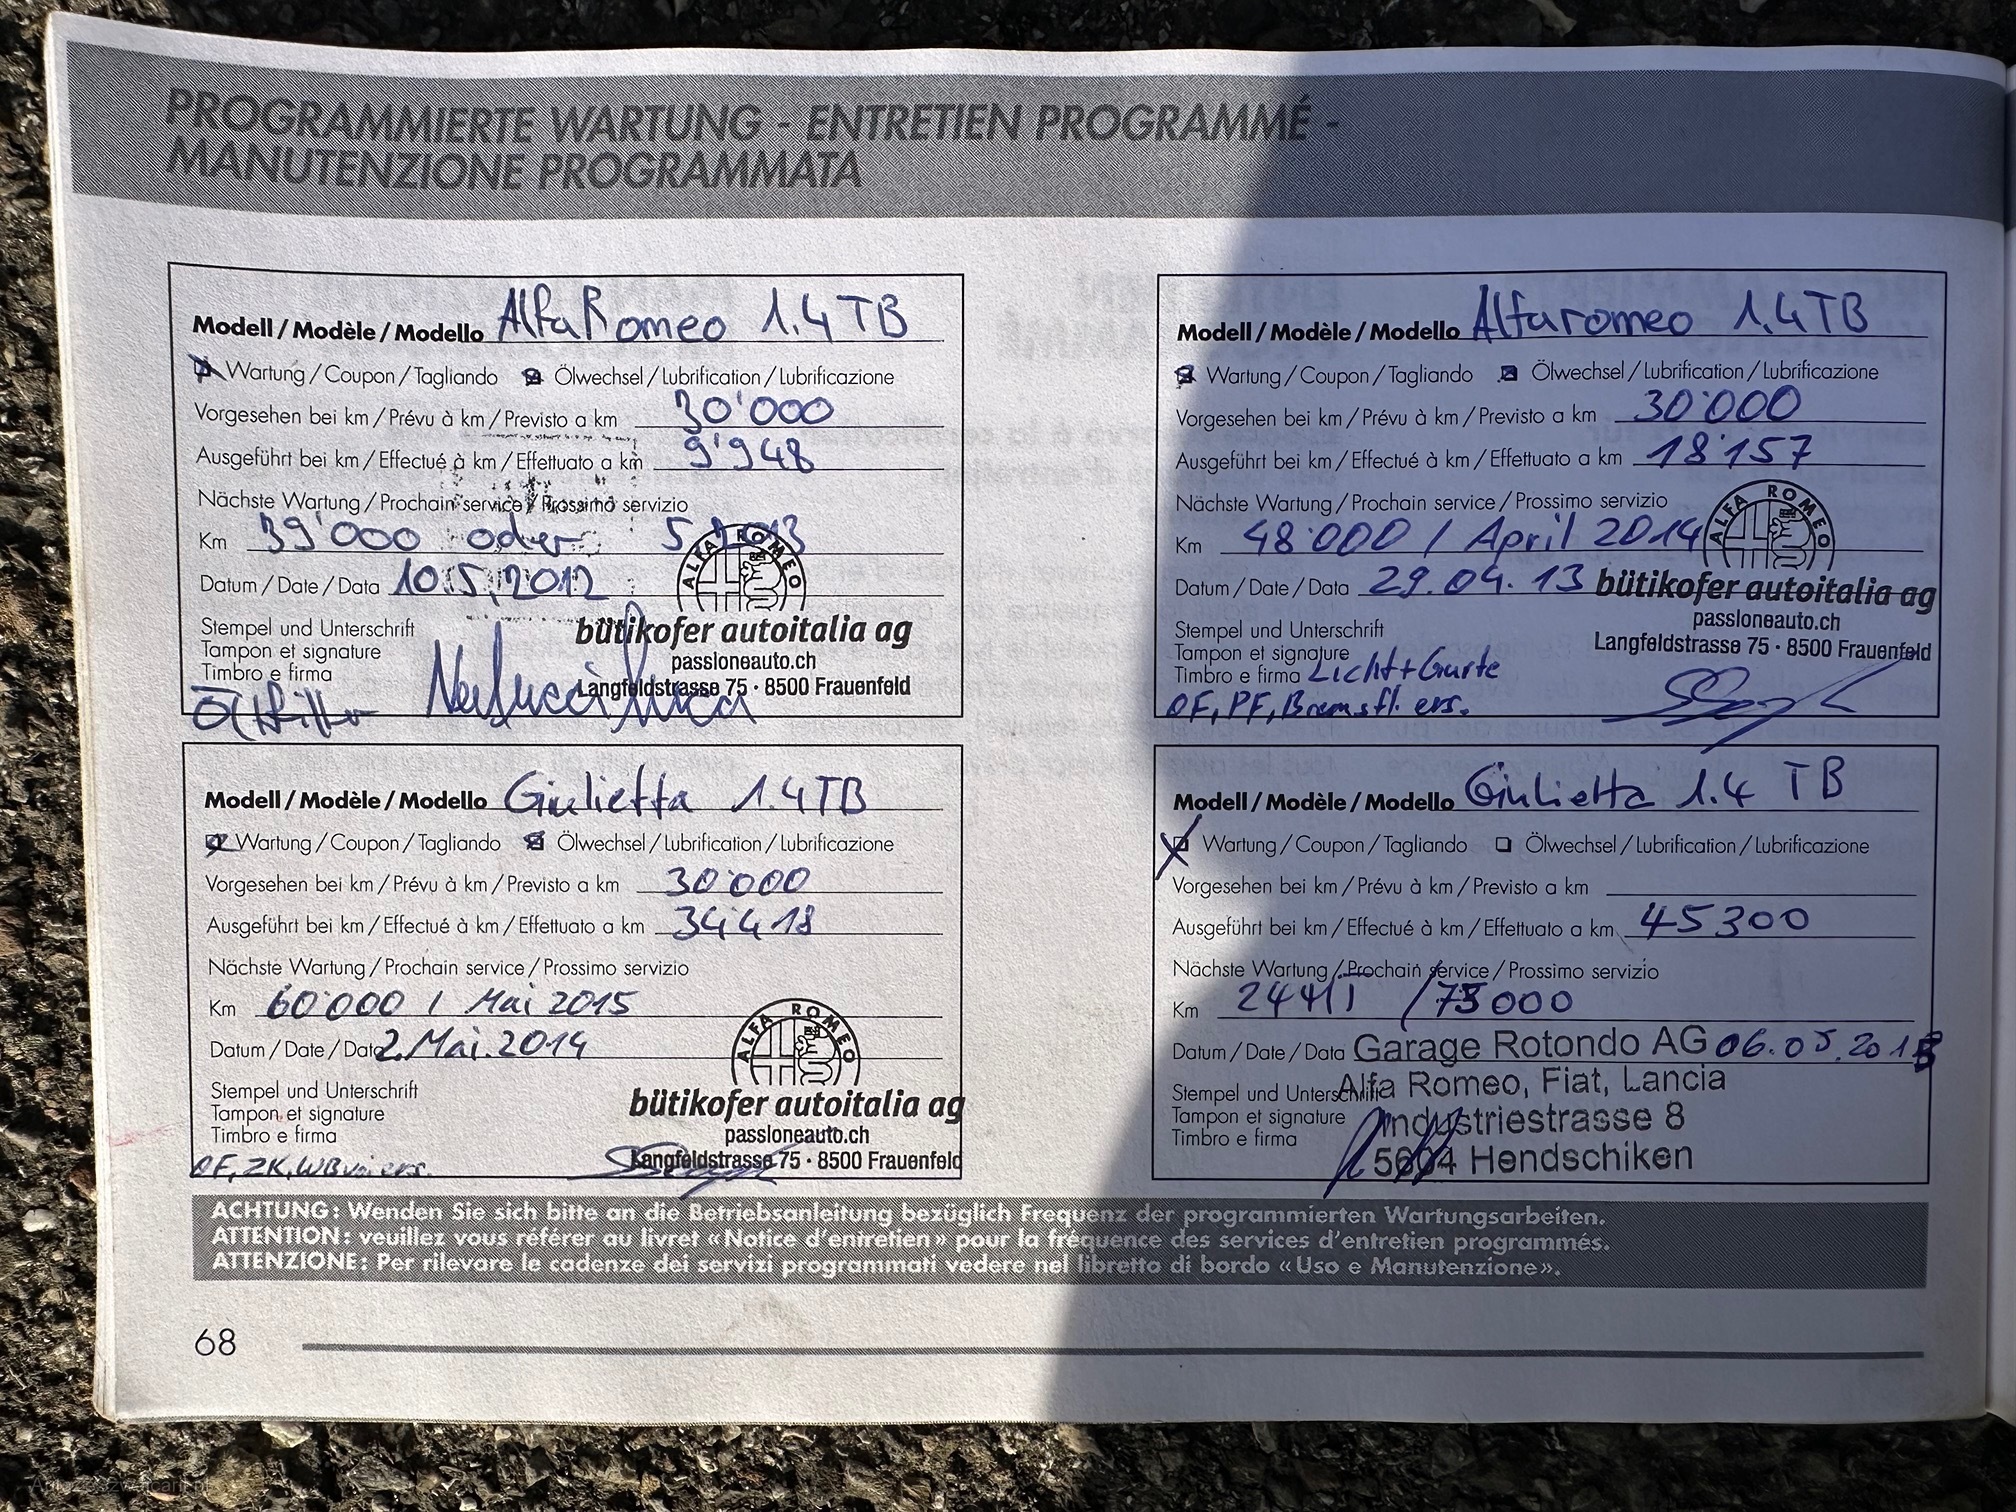 PROGRAMMIERTE WARTUNG - ENTRETIEN PROGRAMMÉ -
MANUTENZIONE PROGRAMMATA
Modell / Modèle / Modello Alfa Romeo 1.4 TB
Wartung / Coupon / Tagliando Ölwechsel / Lubrification / Lubrificazione
Vorgesehen bei km / Prévu à km / Previsto a km 30'000
Ausgeführt bei km / Effectué à km / Effettuato a km 9'948
Nächste Wartung / Prochain service / Prossimo servizio
Km 39'000 oder
Datum / Date / Data 10.5.2012
ALFA ROMEO
Stempel und Unterschrift
Tampon et signature
Timbro e firma
bütikofer autoitalia ag
passioneauto.ch
Langfeldstrasse 75 · 8500 Frauenfeld
Modell / Modèle / Modello Alfaromeo 1.4 TB
Wartung / Coupon / Tagliando Ölwechsel / Lubrification / Lubrificazione
Vorgesehen bei km / Prévu à km / Previsto a km 30'000
Ausgeführt bei km / Effectué à km / Effettuato a km 18'157
Nächste Wartung / Prochain service / Prossimo servizio
Km 48'000 / April 2014
Datum / Date / Data 29.04.13
ALFA ROMEO
bütikofer autoitalia ag
passioneauto.ch
Langfeldstrasse 75 · 8500 Frauenfeld
Stempel und Unterschrift
Tampon et signature
Timbro e firma Licht + Gurte
OF, PF, Bremsfl. ers.
Modell / Modèle / Modello Giulietta 1.4 TB
Wartung / Coupon / Tagliando Ölwechsel / Lubrification / Lubrificazione
Vorgesehen bei km / Prévu à km / Previsto a km 30'000
Ausgeführt bei km / Effectué à km / Effettuato a km 34'418
Nächste Wartung / Prochain service / Prossimo servizio
Km 60'000 / Mai 2015
Datum / Date / Data 2. Mai. 2014
ALFA ROMEO
Stempel und Unterschrift
Tampon et signature
Timbro e firma
bütikofer autoitalia ag
passioneauto.ch
Langfeldstrasse 75 · 8500 Frauenfeld
OF, ZK, ers.
Modell / Modèle / Modello Giulietta 1.4 TB
Wartung / Coupon / Tagliando Ölwechsel / Lubrification / Lubrificazione
Vorgesehen bei km / Prévu à km / Previsto a km
Ausgeführt bei km / Effectué à km / Effettuato a km 45300
Nächste Wartung / Prochain service / Prossimo servizio
Km / 75000
Datum / Date / Data Garage Rotondo AG
Stempel und Unterschrift Alfa Romeo, Fiat, Lancia
Tampon et signature Industriestrasse 8
Timbro e firma 5604 Hendschiken
ACHTUNG: Wenden Sie sich bitte an die Betriebsanleitung bezüglich Frequenz der programmierten Wartungsarbeiten.
ATTENTION: veuillez vous référer au livret «Notice d'entretien» pour la fréquence des services d'entretien programmés.
ATTENZIONE: Per rilevare le cadenze dei servizi programmati vedere nel libretto di bordo «Uso e Manutenzione».
68